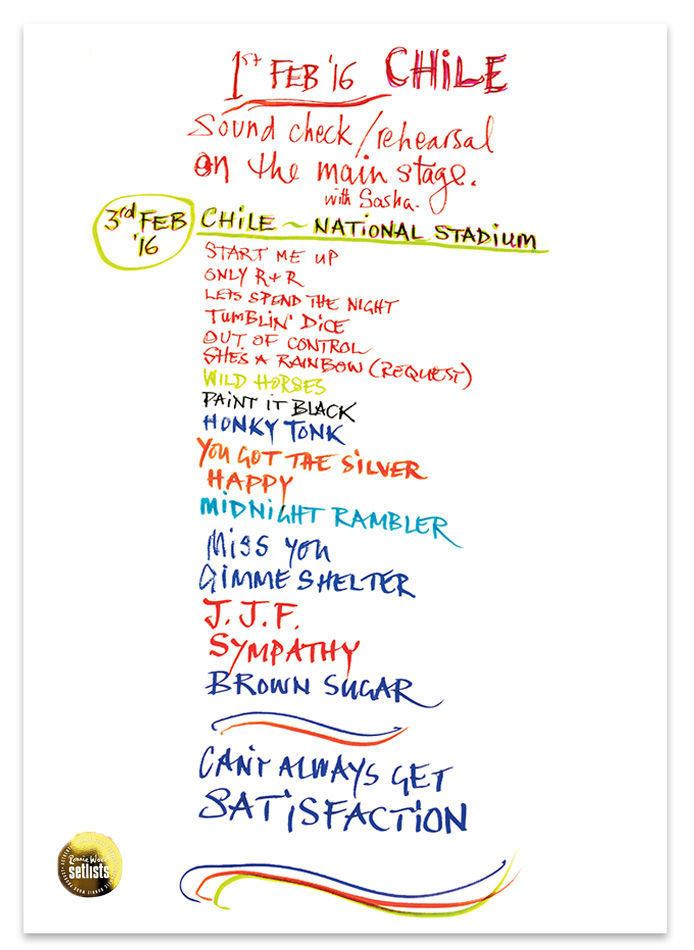 1st FEB '16 CHiLE
Sound check/rehearsal
on the main stage.
with Sasha.
3rd FEB '16
CHiLE ~ NATiONAL STADiUM
START ME UP
ONLY R+R
LETS SPEND THE NIGHT
TUMBLiN' DiCE
OUT OF CONTROL
SHE'S A RAINBOW (REQUEST)
WILD HORSES
PAiNT iT BLACK
HONKY TONK
YOU GOT THE SiLVER
HAPPY
MiDNiGHT RAMBLER
Miss you
GiMME SHELTER
J.J.F.
SYMPATHY
BROWN SUGAR
CAN'T ALWAYS GET
SATiSFACTiON
Ronnie Wood
setlists